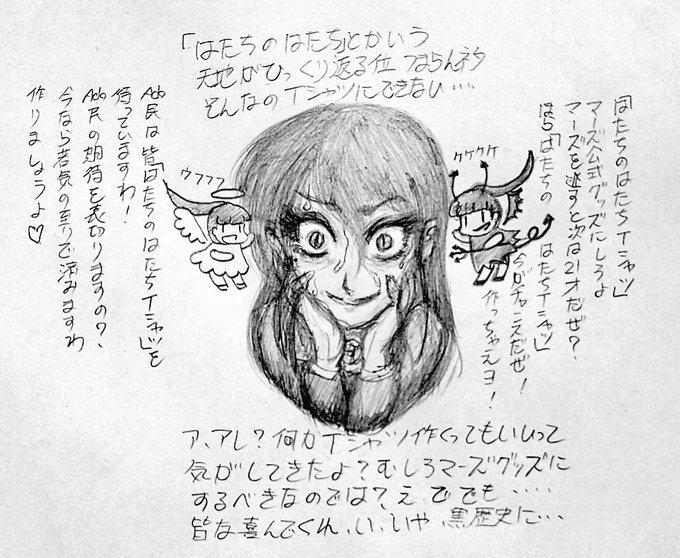 「はたちのはたち」とかいう
天地がひっくり返る位 つまらんネタ
そんなのTシャツにできない…
「はたちのはたちTシャツ」
マーズ公式グッズにしろよ
マーズを逃すと次は21才だぜ?
ほら「はたちの はたちTシャツ」
今がチャンスだぜ!
作っちゃえヨ!
ケケケケ
ウフフフ
Ado民は皆「はたちのはたちTシャツ」を
待っていますわ!
Ado民の期待を裏切りますの?
今なら若気の至りで済みますわ
作りましょうよ♡
ア、アレ?何かTシャツ作くってもいいって
気がしてきたよ?むしろマーズグッズに
するべきなのでは?え、ででも‥‥
皆な喜んでくれ、い、いや、黒歴史に…